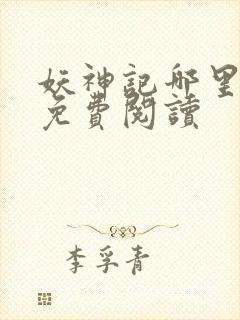 妖神記哪里
免費閱讀
李孚青